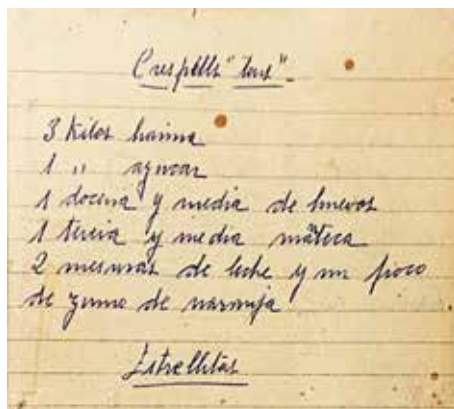 Crespells "tous"
3 Kilos harina
1 " azucar
1 docena y media de huevos
1 tercia y media māteca
2 mesuras de leche y un poco
de zumo de naranja
Estrellitas